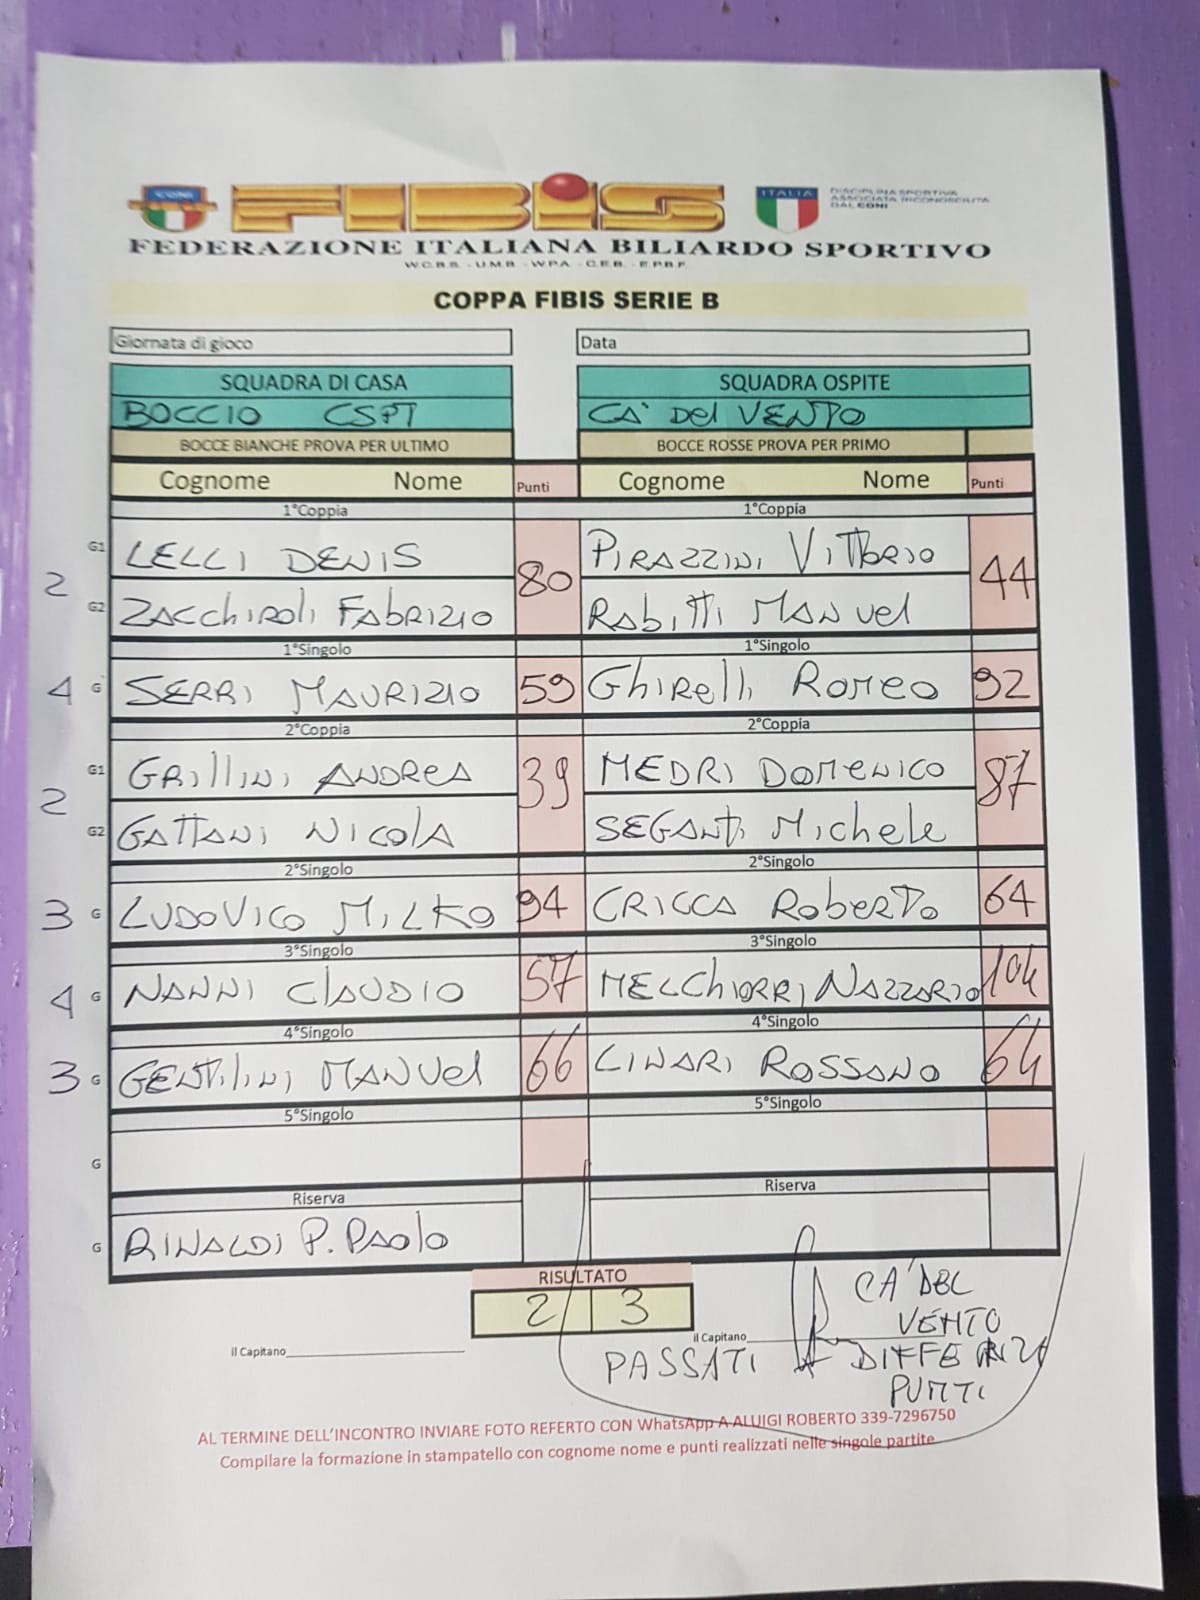 CONI
FIBIS
ITALIA
DISCIPLINA SPORTIVA
ASSOCIATA RICONOSCIUTA
DAL CONI
FEDERAZIONE ITALIANA BILIARDO SPORTIVO
W.C.B.S. - U.M.B. - W.P.A. - C.E.B. - E.P.B.F.
COPPA FIBIS SERIE B
Giornata di gioco Data
SQUADRA DI CASA SQUADRA OSPITE
BOCCIO CSPT CA' DEl VENTO
BOCCE BIANCHE PROVA PER ULTIMO BOCCE ROSSE PROVA PER PRIMO
Cognome Nome Punti Cognome Nome Punti
1°Coppia 1°Coppia
2 G1 LELLI DENIS 80 PIRAZZINI VITTORIO 44
G2 ZACCHIROLI FABRIZIO RABITTI MANUEL
1°Singolo 1°Singolo
4 G SERRI MAURIZIO 59 GHIRELLI ROMEO 92
2°Coppia 2°Coppia
2 G1 GRILLINI ANDREA 39 MEDRI DOMENICO 87
G2 GATTANI NICOLA SEGANTI MICHELE
2°Singolo 2°Singolo
3 G LUDOVICO MILKO 94 CRICCA ROBERTO 64
3°Singolo 3°Singolo
4 G NANNI CLAUDIO 57 MELCHIORRI NAZZARIO 104
4°Singolo 4°Singolo
3 G GENTILINI MANUEL 66 LINARI ROSSANO 64
5°Singolo 5°Singolo
G
Riserva Riserva
G RINALDI P. PAOLO
RISULTATO
2 3
il Capitano il Capitano
PASSATI CA' DEL
VENTO
DIFFERENZA
PUNTI
AL TERMINE DELL'INCONTRO INVIARE FOTO REFERTO CON WhatsApp A ALUIGI ROBERTO 339-7296750
Compilare la formazione in stampatello con cognome nome e punti realizzati nelle singole partite